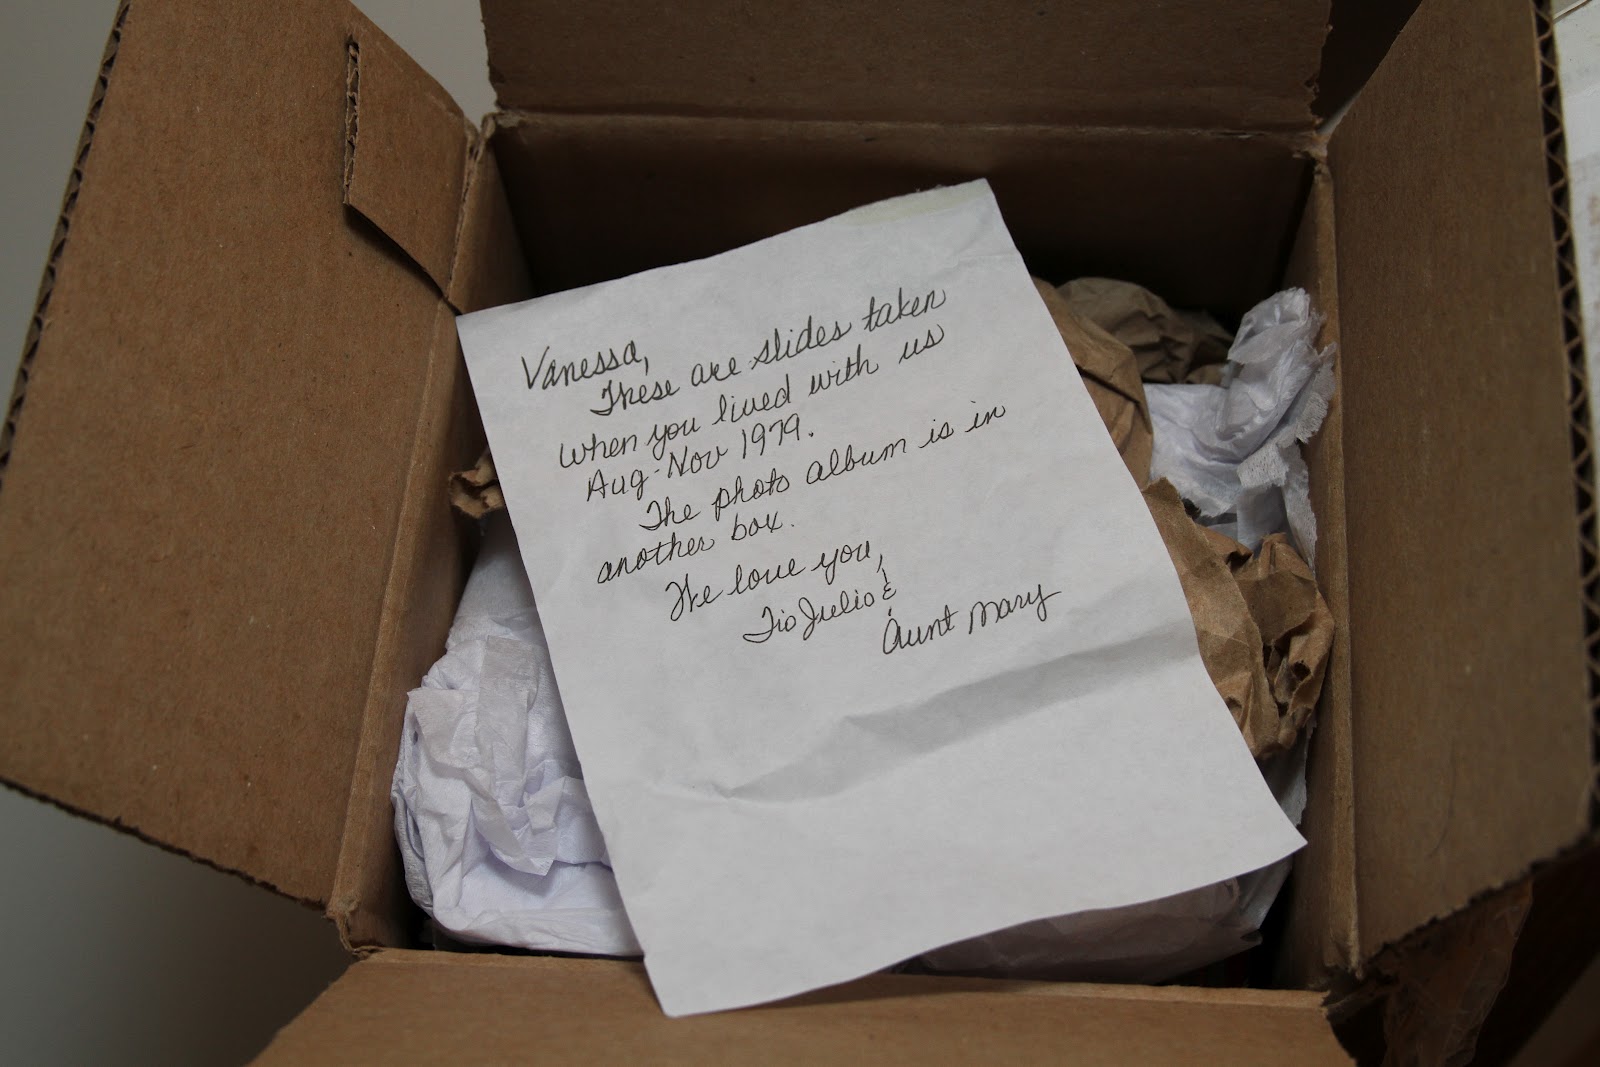 Vanessa,
These are slides taken
when you lived with us
Aug-Nov 1979.
The photo album is in
another box.
We love you,
Tio Julio &
Aunt Mary